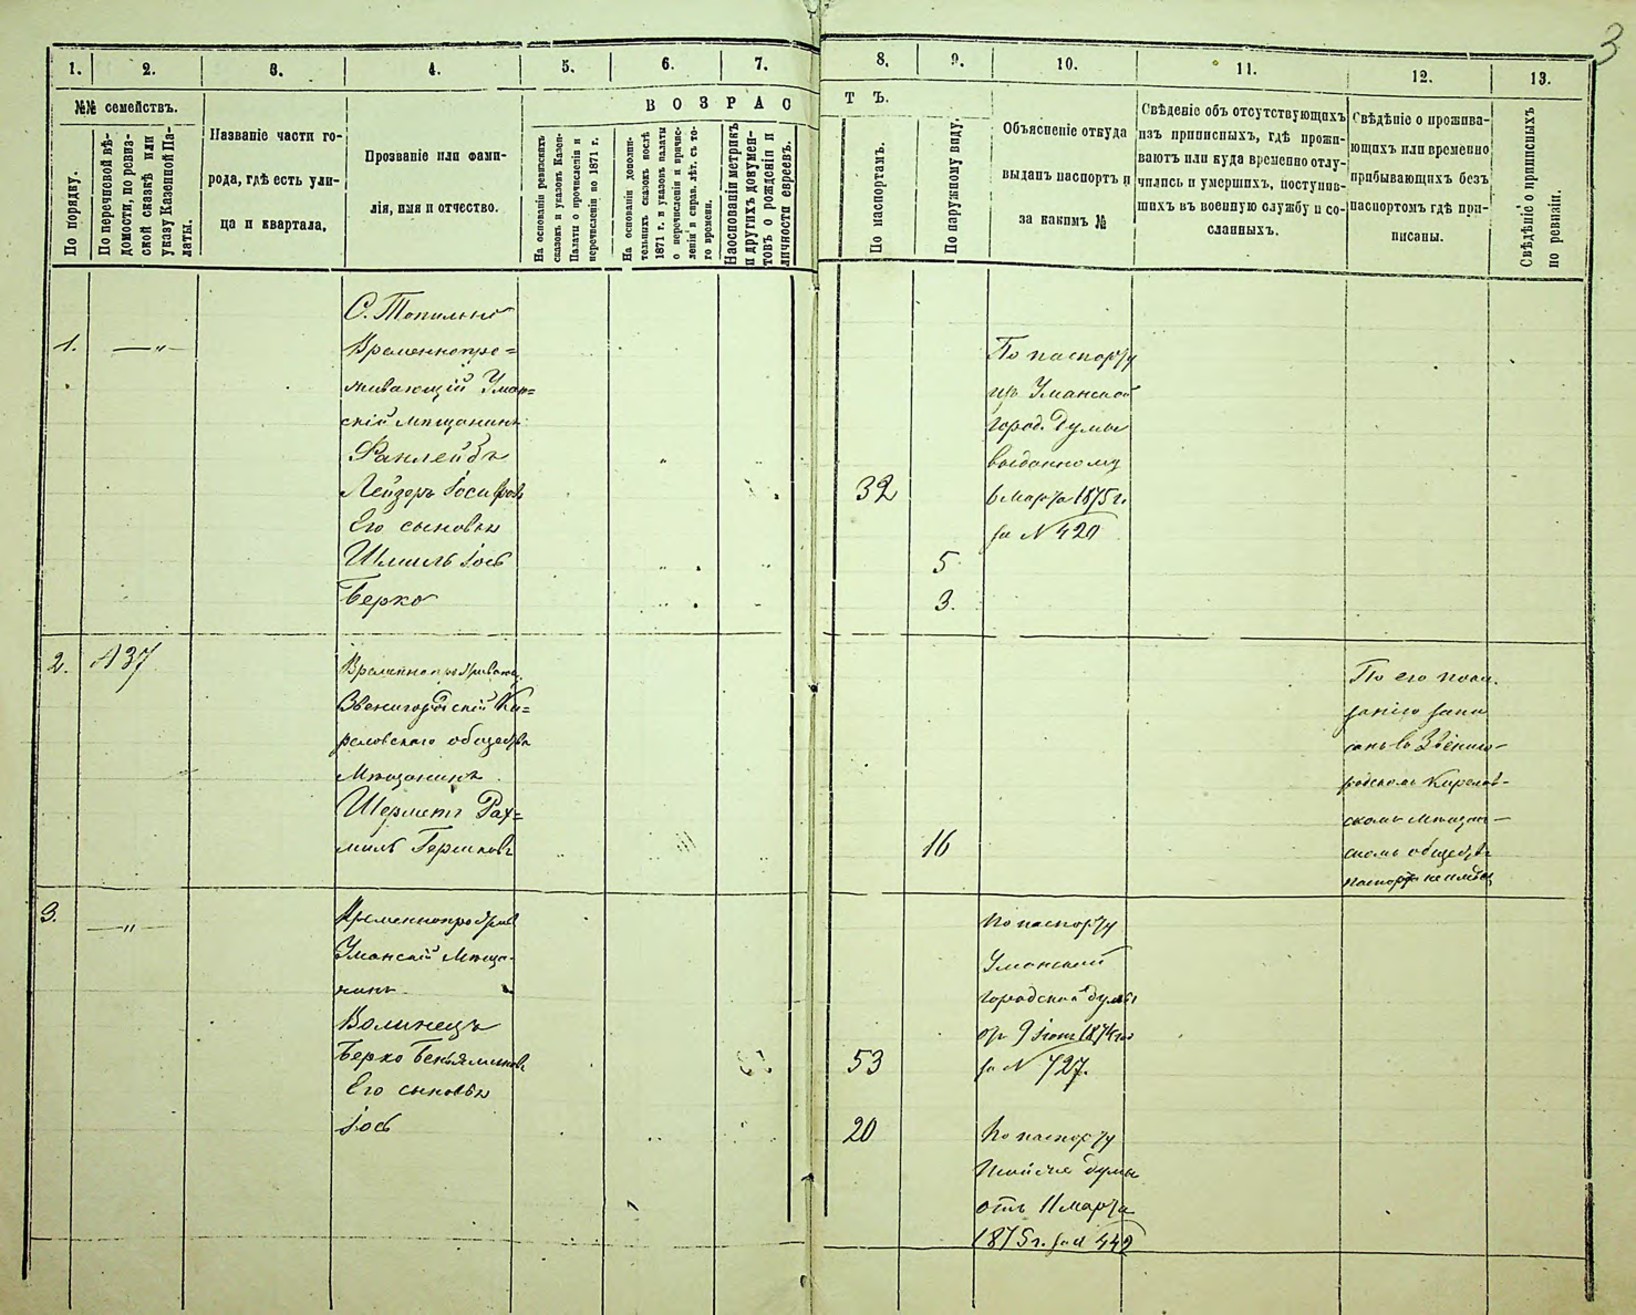 3
1. 2. 3. 4. 5. 6. 7. 8. 9. 10. 11. 12. 13.
№№ семействъ.
По порядку.
По перечневой вѣ-
домости, по ревиз-
ской сказкѣ или
указу Казенной Па-
латы.
Названіе части го-
рода, гдѣ есть ули-
ца и квартала.
Прозваніе или фами-
лія, имя и отчество.
ВОЗРАСТЪ.
На основаніи ревизскихъ
сказокъ и указовъ Казен.
Палаты о причисленіи и
перечисленіи по 1871 г.
На основаніи дополни-
тельныхъ сказокъ послѣ
1871 г. и указовъ палаты
о перечисленіи и причис-
леніи и справ. лѣт. съ то-
го времени.
Наоснованіи метрикъ
и другихъ докумен-
товъ о рожденіи и
личности евреевъ.
По паспортамъ.
По наружному виду.
Объясненіе откуда
выданъ паспортъ и
за какимъ №
Свѣденіе объ отсутствующихъ
изъ приписныхъ, гдѣ прожи-
ваютъ или куда временно отлу-
чились и умершихъ, поступив-
шихъ въ военную службу и со-
сланныхъ.
Свѣдѣніе о прожива-
ющихъ или временно
прибывающихъ безъ
паспортомъ гдѣ при-
писаны.
Свѣдѣніе о приписныхъ
по ревизіи.
С. Топильно
1. — „ —
Временнопро=
живающій Уман=
скій мѣщанинъ
Файлейбъ
Лейзоръ Іосифовъ
Его сыновья
Шмиль Іось
Берко
32
5
3.
По паспорту
изъ Уманской
город. Думы
выданному
6 Марта 1875 г.
за N 420
2. N 37
Временнопробываю.
Звенигородскій Ки=
реловскаго общества
Мѣщанинъ
Шерметъ Рах=
миль Гершковъ
16
По его пока.
занію запи
санъ въ Звениго-
родскомъ Кирелов-
скомъ мѣщан-
скомъ обществѣ
паспорта не имѣетъ
3. — „ —
Временнопробыв
Уманскій Мѣща-
нинъ
Волинецъ
Берко Беньяминовъ
Его сыновья
Іось
53
20
По паспорту
Уманской
городской думы
отъ 9 Іюня 1874 год
за N 727.
По паспорту
думы
отъ 11 марта
1875 г. за N 442